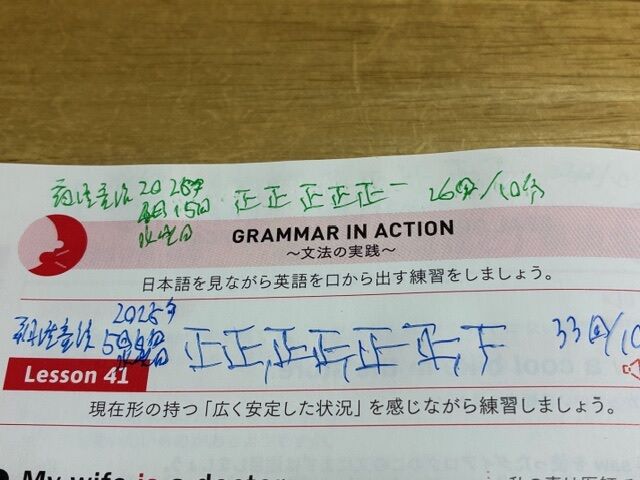 2025年 正正正正正一 26回/10分
GRAMMAR IN ACTION
〜文法の実践〜
日本語を見ながら英語を口から出す練習をしましょう。
2025年
正正,正正,正正,下 33回/10
Lesson 41
現在形の持つ「広く安定した状況」を感じながら練習しましょう。
My wife is a doctor